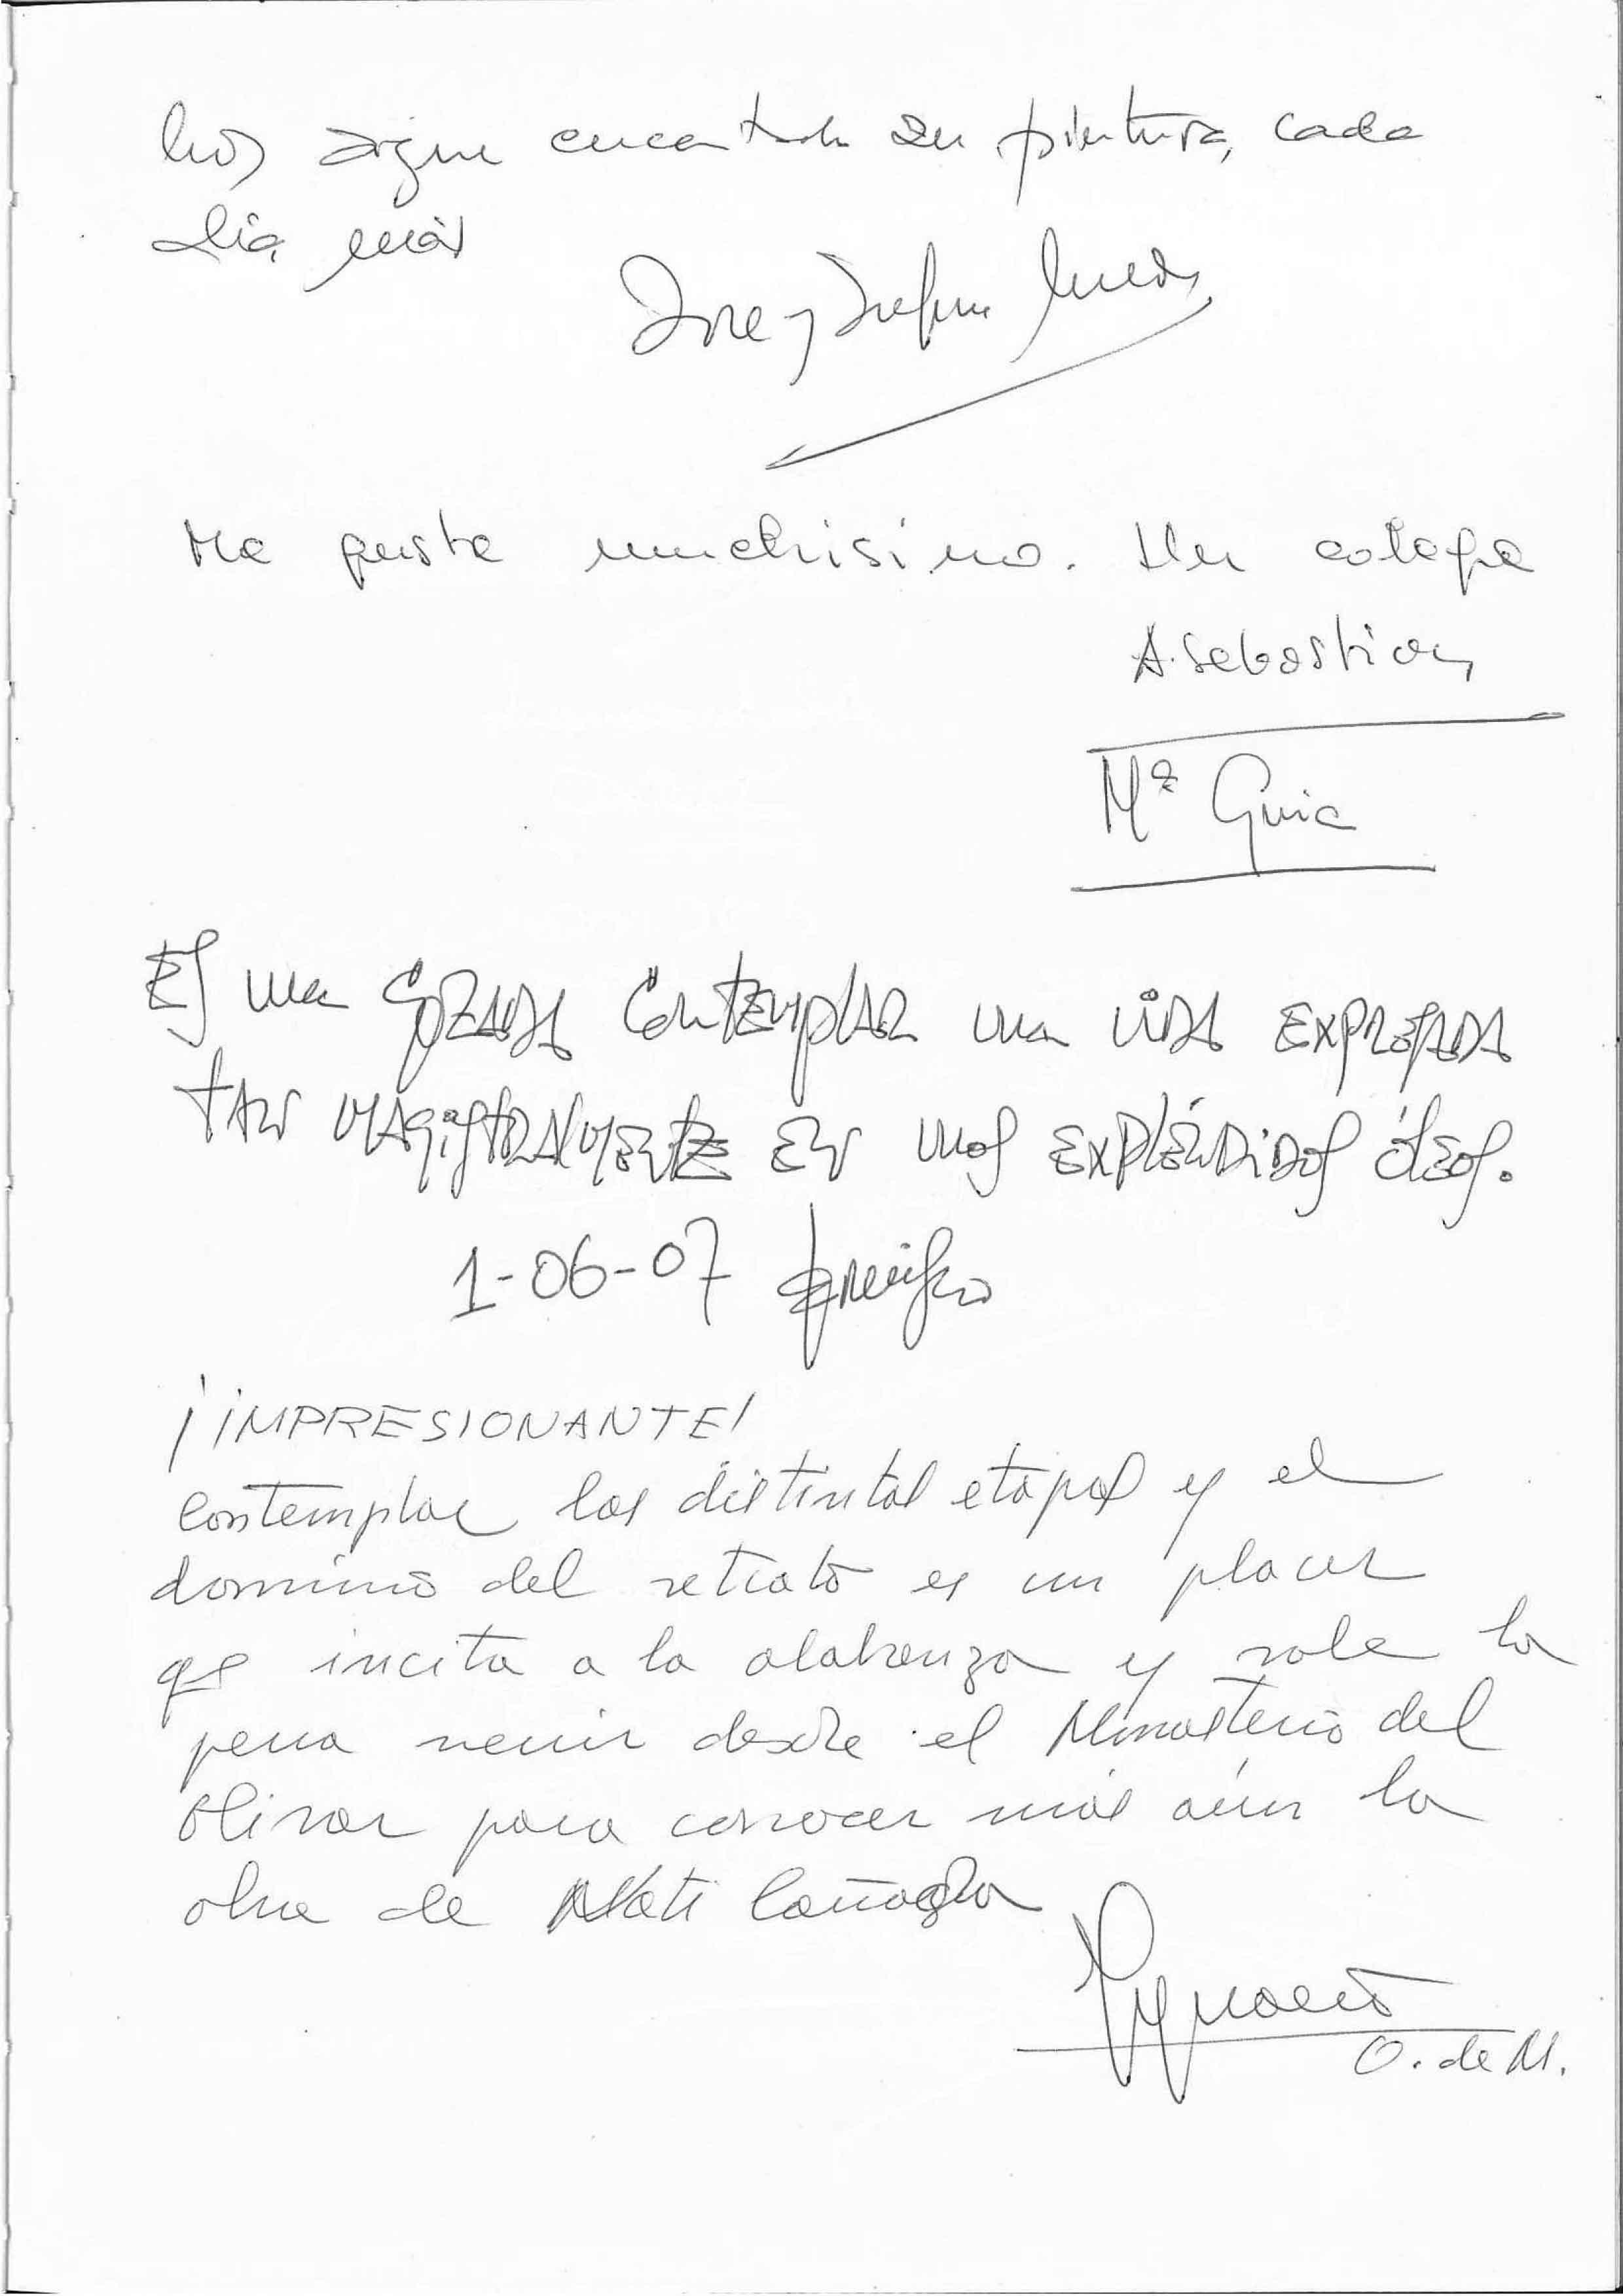 Nos sigue encantando su pintura, cada
día más
Jose y
Me gusta muchisimo. Un colega
A. Sebastian
Mª Guia
ES una GOZADA CONTEMPLAR una VIDA EXPRESADA
TAN MAGISTRALMENTE EN unos EXPLÉNDIDOS ÓLEOS.
1-06-07
¡IMPRESIONANTE!
Contemplar las distintas etapas y el
dominio del retrato es un placer
qe incita a la alabanza y vale la
pena venir desde el Monasterio del
Olivar para conocer más aún la
obra de Nati Cañada
Ignacio
O. de M.